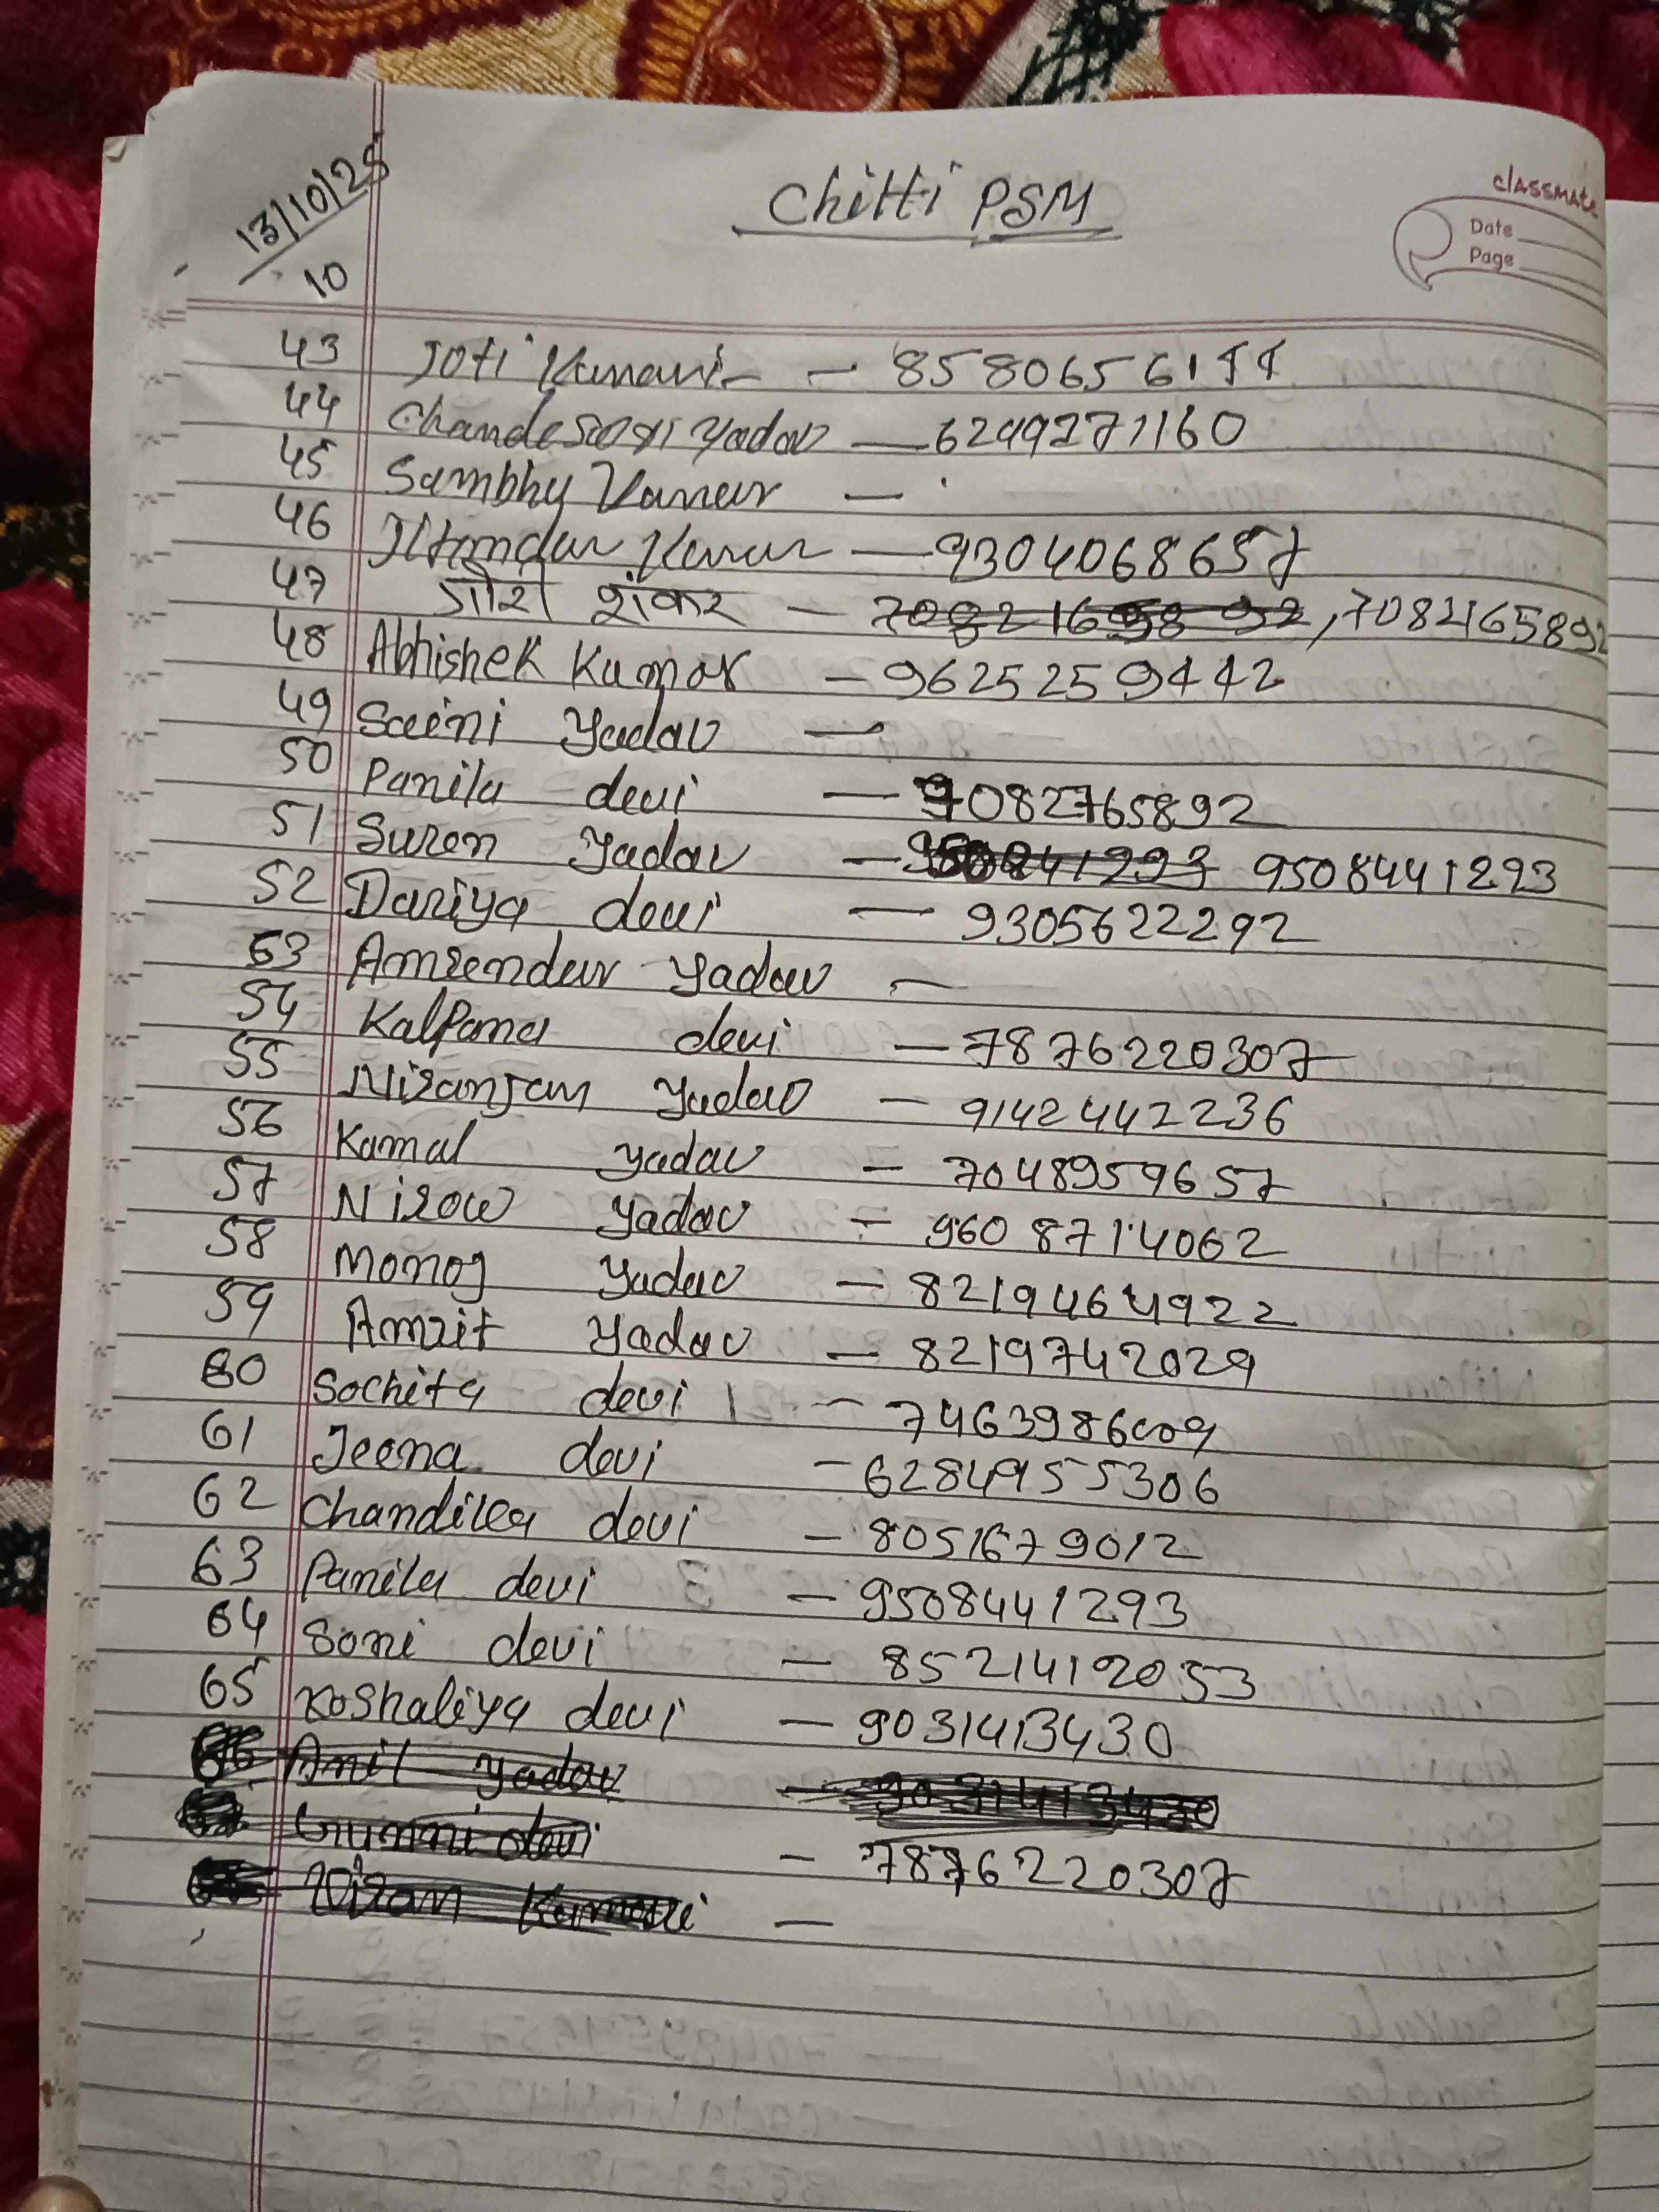 13/10/25
10
Chitti PSM
classmate
Date
Page
43 Joti Kumari - 8580656177
44 Chandeswari Yadav - 6299271160
45 Sambhu Kumar -
46 Kumar - 9304068657
47 गोरी शंकर - 7082165892, 7082165892
48 Abhishek Kumar - 9625259442
49 Saini Yadav -
50 Panila devi - 7082765892
51 Suren Yadav - 9508441293
52 Dariya devi - 9305622292
53 Amrendar Yadav -
54 Kalpana devi - 7876220307
55 Niranjan Yadav - 9142442236
56 Kamal yadav - 7048959657
57 Nirow yadav - 9608714062
58 Monoj yadav - 8219464922
59 Amrit yadav - 8219742029
60 Sochita devi - 7463986009
61 Jeena devi - 6284955306
62 Chandika devi - 8051679012
63 Panila devi - 9508441293
64 Soni devi - 8521412053
65 Koshaliya devi - 9031413430
66 Anil yadav - 9031413430
devi - 7876220307
Kumari -